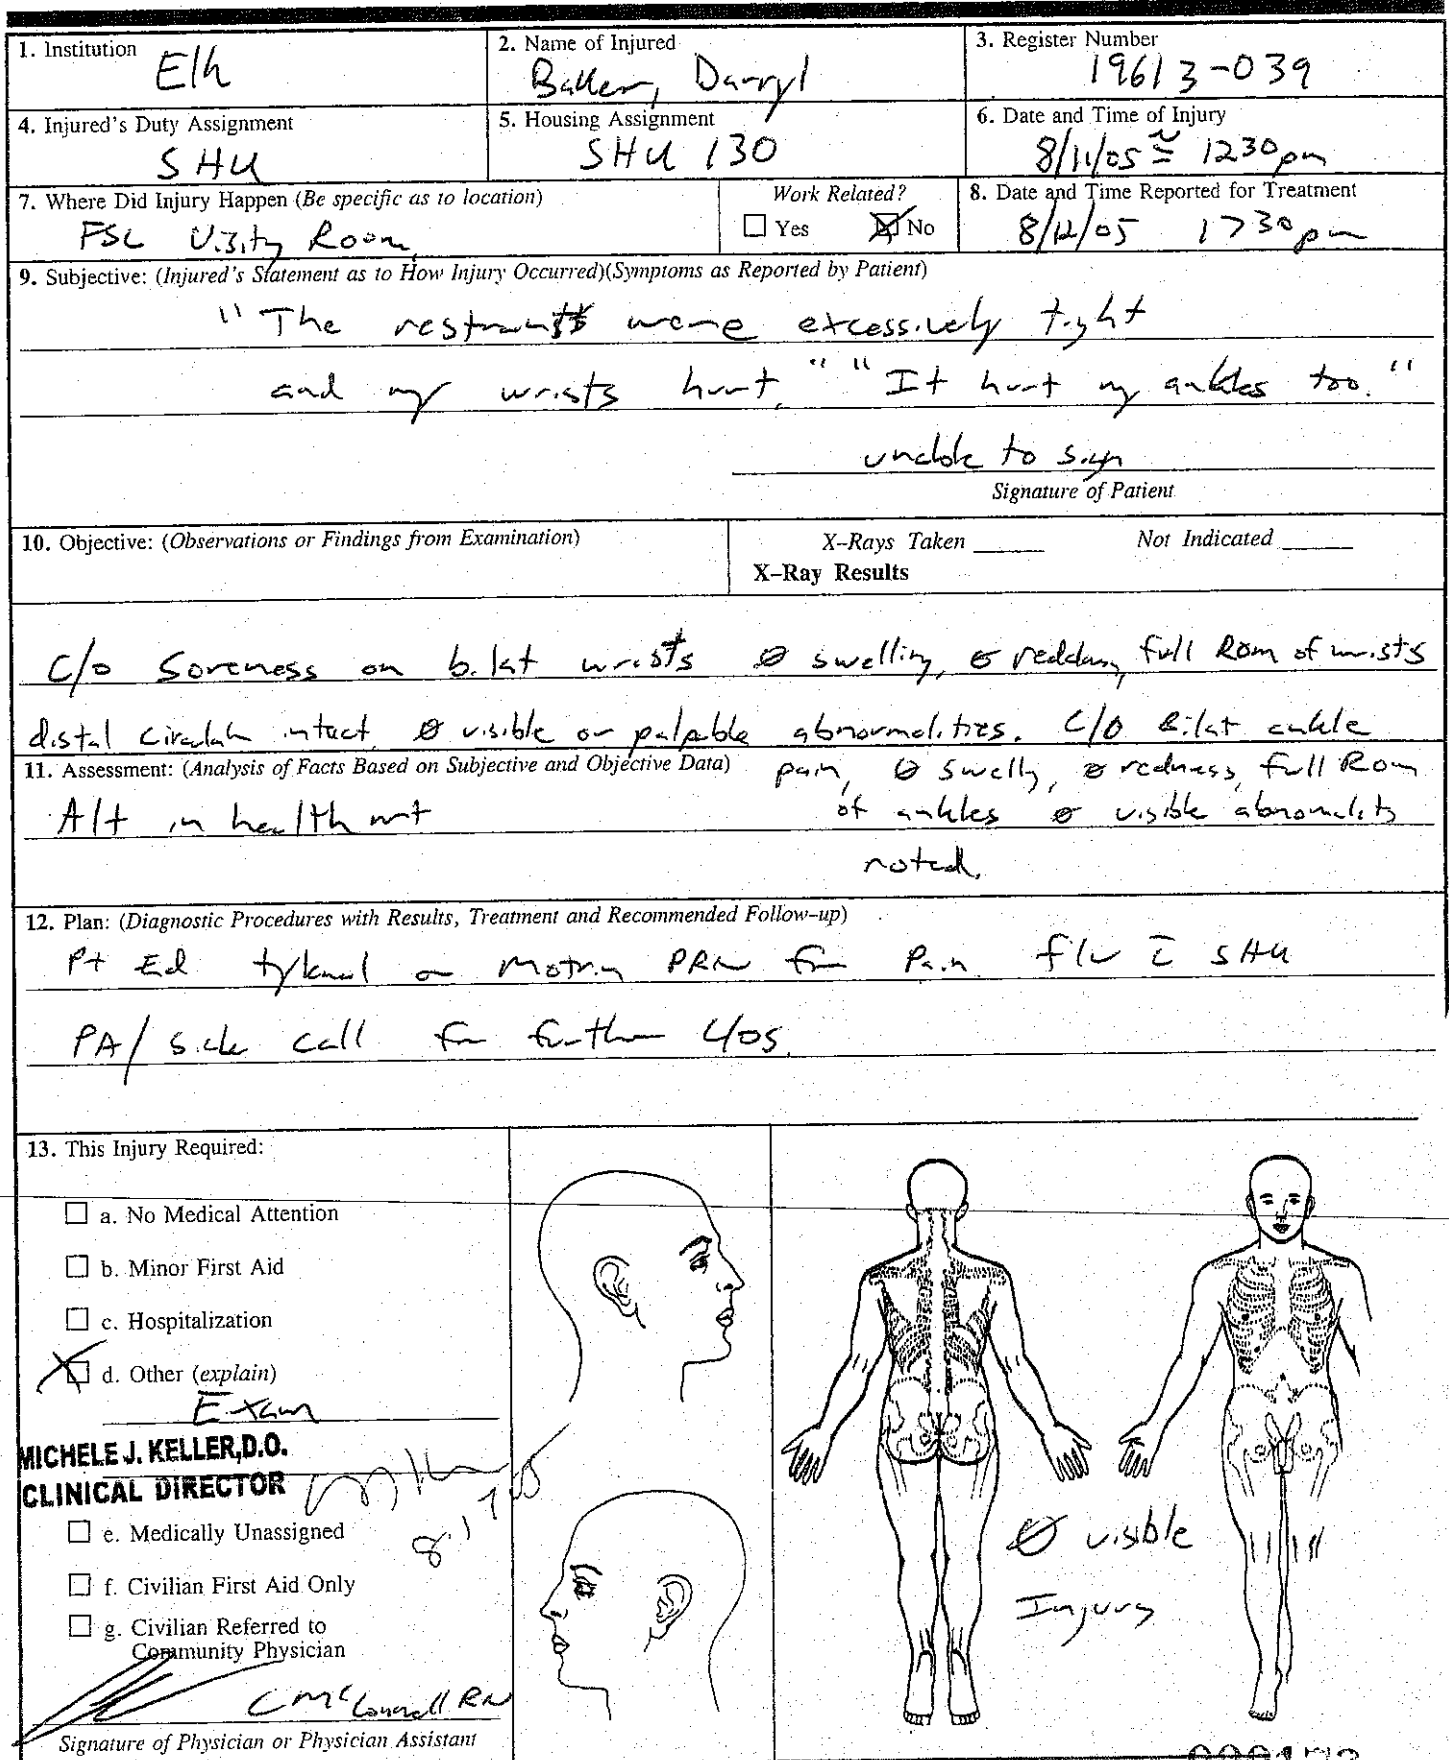 1. Institution
Elk
2. Name of Injured
Darryl
3. Register Number
19613-039
4. Injured's Duty Assignment
SHU
5. Housing Assignment
SHU 130
6. Date and Time of Injury
8/11/05 ≅ 1230pm
7. Where Did Injury Happen (Be specific as to location)
Room
Work Related?
☐ Yes ☒ No
8. Date and Time Reported for Treatment
pm
9. Subjective: (Injured's Statement as to How Injury Occurred)(Symptoms as Reported by Patient)
"The restraints were excessively tight
and my wrists hurt." "It hurt my ankles too."
unable to sign
Signature of Patient
10. Objective: (Observations or Findings from Examination)
X-Rays Taken ______ Not Indicated ______
X-Ray Results
C/o Soreness on bilat wrists Ø swelling, Ø full Rom of wrists
distal intact Ø visible or palpable abnormalities. C/O Bilat ankle
11. Assessment: (Analysis of Facts Based on Subjective and Objective Data)
pain, Ø swelly, Ø redness, full Rom
Alt in health mt
of ankles Ø visible
noted.
12. Plan: (Diagnostic Procedures with Results, Treatment and Recommended Follow-up)
Pt Ed tylenol or Motrin PRN for Pain f/u c̄ SHU
PA/ sick call for further c/os.
13. This Injury Required:
☐ a. No Medical Attention
☐ b. Minor First Aid
☐ c. Hospitalization
☒ d. Other (explain)
Exam
MICHELE J. KELLER,D.O.
CLINICAL DIRECTOR
☐ e. Medically Unassigned
☐ f. Civilian First Aid Only
☐ g. Civilian Referred to
Community Physician
Ø visible
Injury
RN
Signature of Physician or Physician Assistant